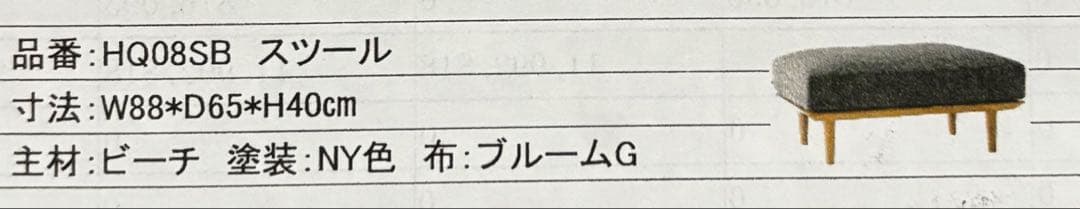 品番:HQ08SB スツール
寸法:W88*D65*H40cm
主材:ビーチ 塗装:NY色 布:ブルームG